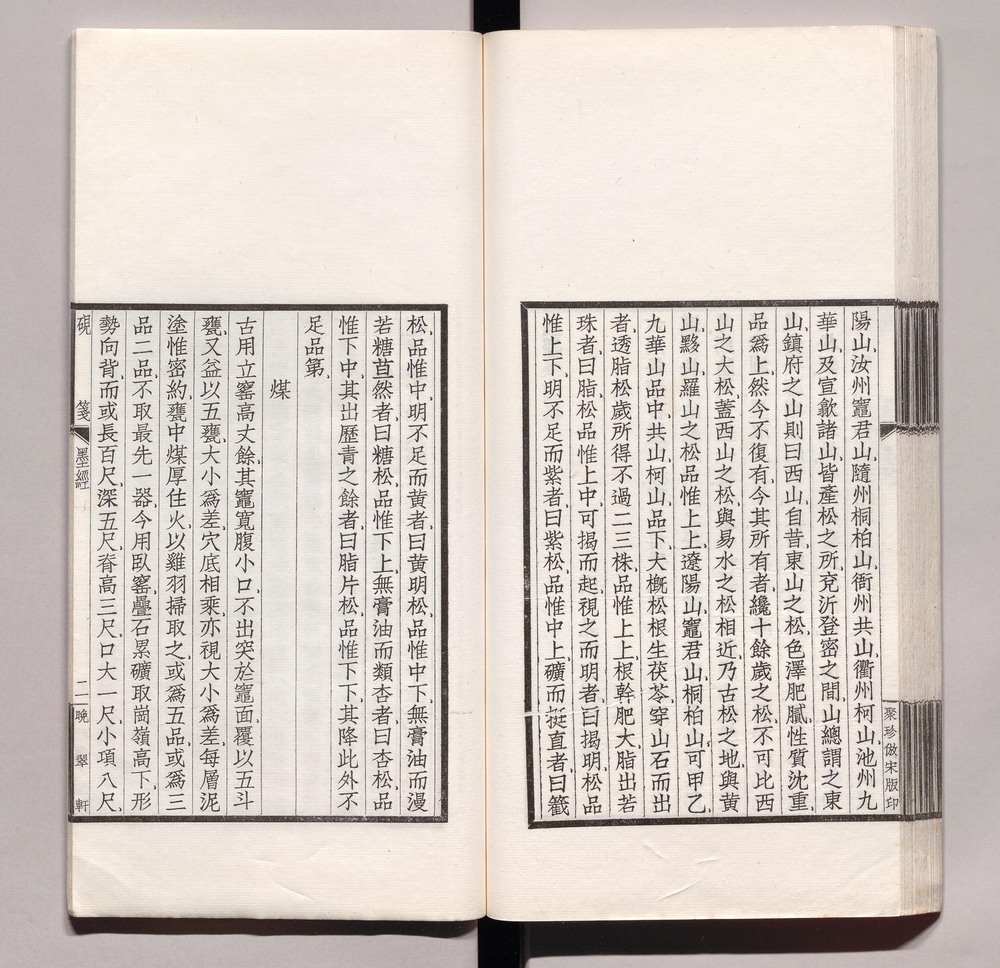 陽山、汝州竈君山、隨州桐柏山、衢州共山、衢州柯山、池州九
華山及宣歙諸山、皆產松之所、兗沂登密之間、山總謂之東
山、鎮府之山則曰西山、自昔東山之松、色澤肥膩、性質沈重、
品爲上上、然今不復有、今其所有者、纔十餘歲之松、不可比西
山之大松、蓋西山之松、與易水之松相近、乃古松之地、與黃
山、黟山、羅山之松、品惟上上、遼陽山、竈君山、桐柏山、可甲乙、
九華山品中、共山、柯山、品下、大槪松根生茯苓、穿山石而出
者、透脂松、歲所得不過二三株、品惟上上、根幹肥大、脂出若
珠者、曰脂松、品惟上中、可揭而起、視之而明者、曰揭明松、品
惟上下、明不足而紫者、曰紫松、品惟中上、礦而挺直者、曰籤
聚珍倣宋版印
松、品惟中中、明不足而黃者、曰黃明松、品惟中下、無膏油而漫
若糖苴然者、曰糖松、品惟下上、無膏油而類杏者、曰杏松、品
惟下中、其出瀝青之餘者、曰脂片松、品惟下下、其降此外、不
足品第、
煤
古用立窰、高丈餘、其竈寬腹小口、不出突、於竈面覆以五斗
甕、又益以五甕、大小爲差、穴底相乘、亦視大小爲差、每層泥
塗惟密、約甕中煤厚住火、以雞羽掃取之、或爲五品、或爲三
品二品、不取最先一器、今用臥窰、疊石累礦、取崗嶺高下、形
勢向背、而或長百尺、深五尺、脊高三尺、口大一尺、小項八尺、
硯箋 墨經 二 晚翠軒